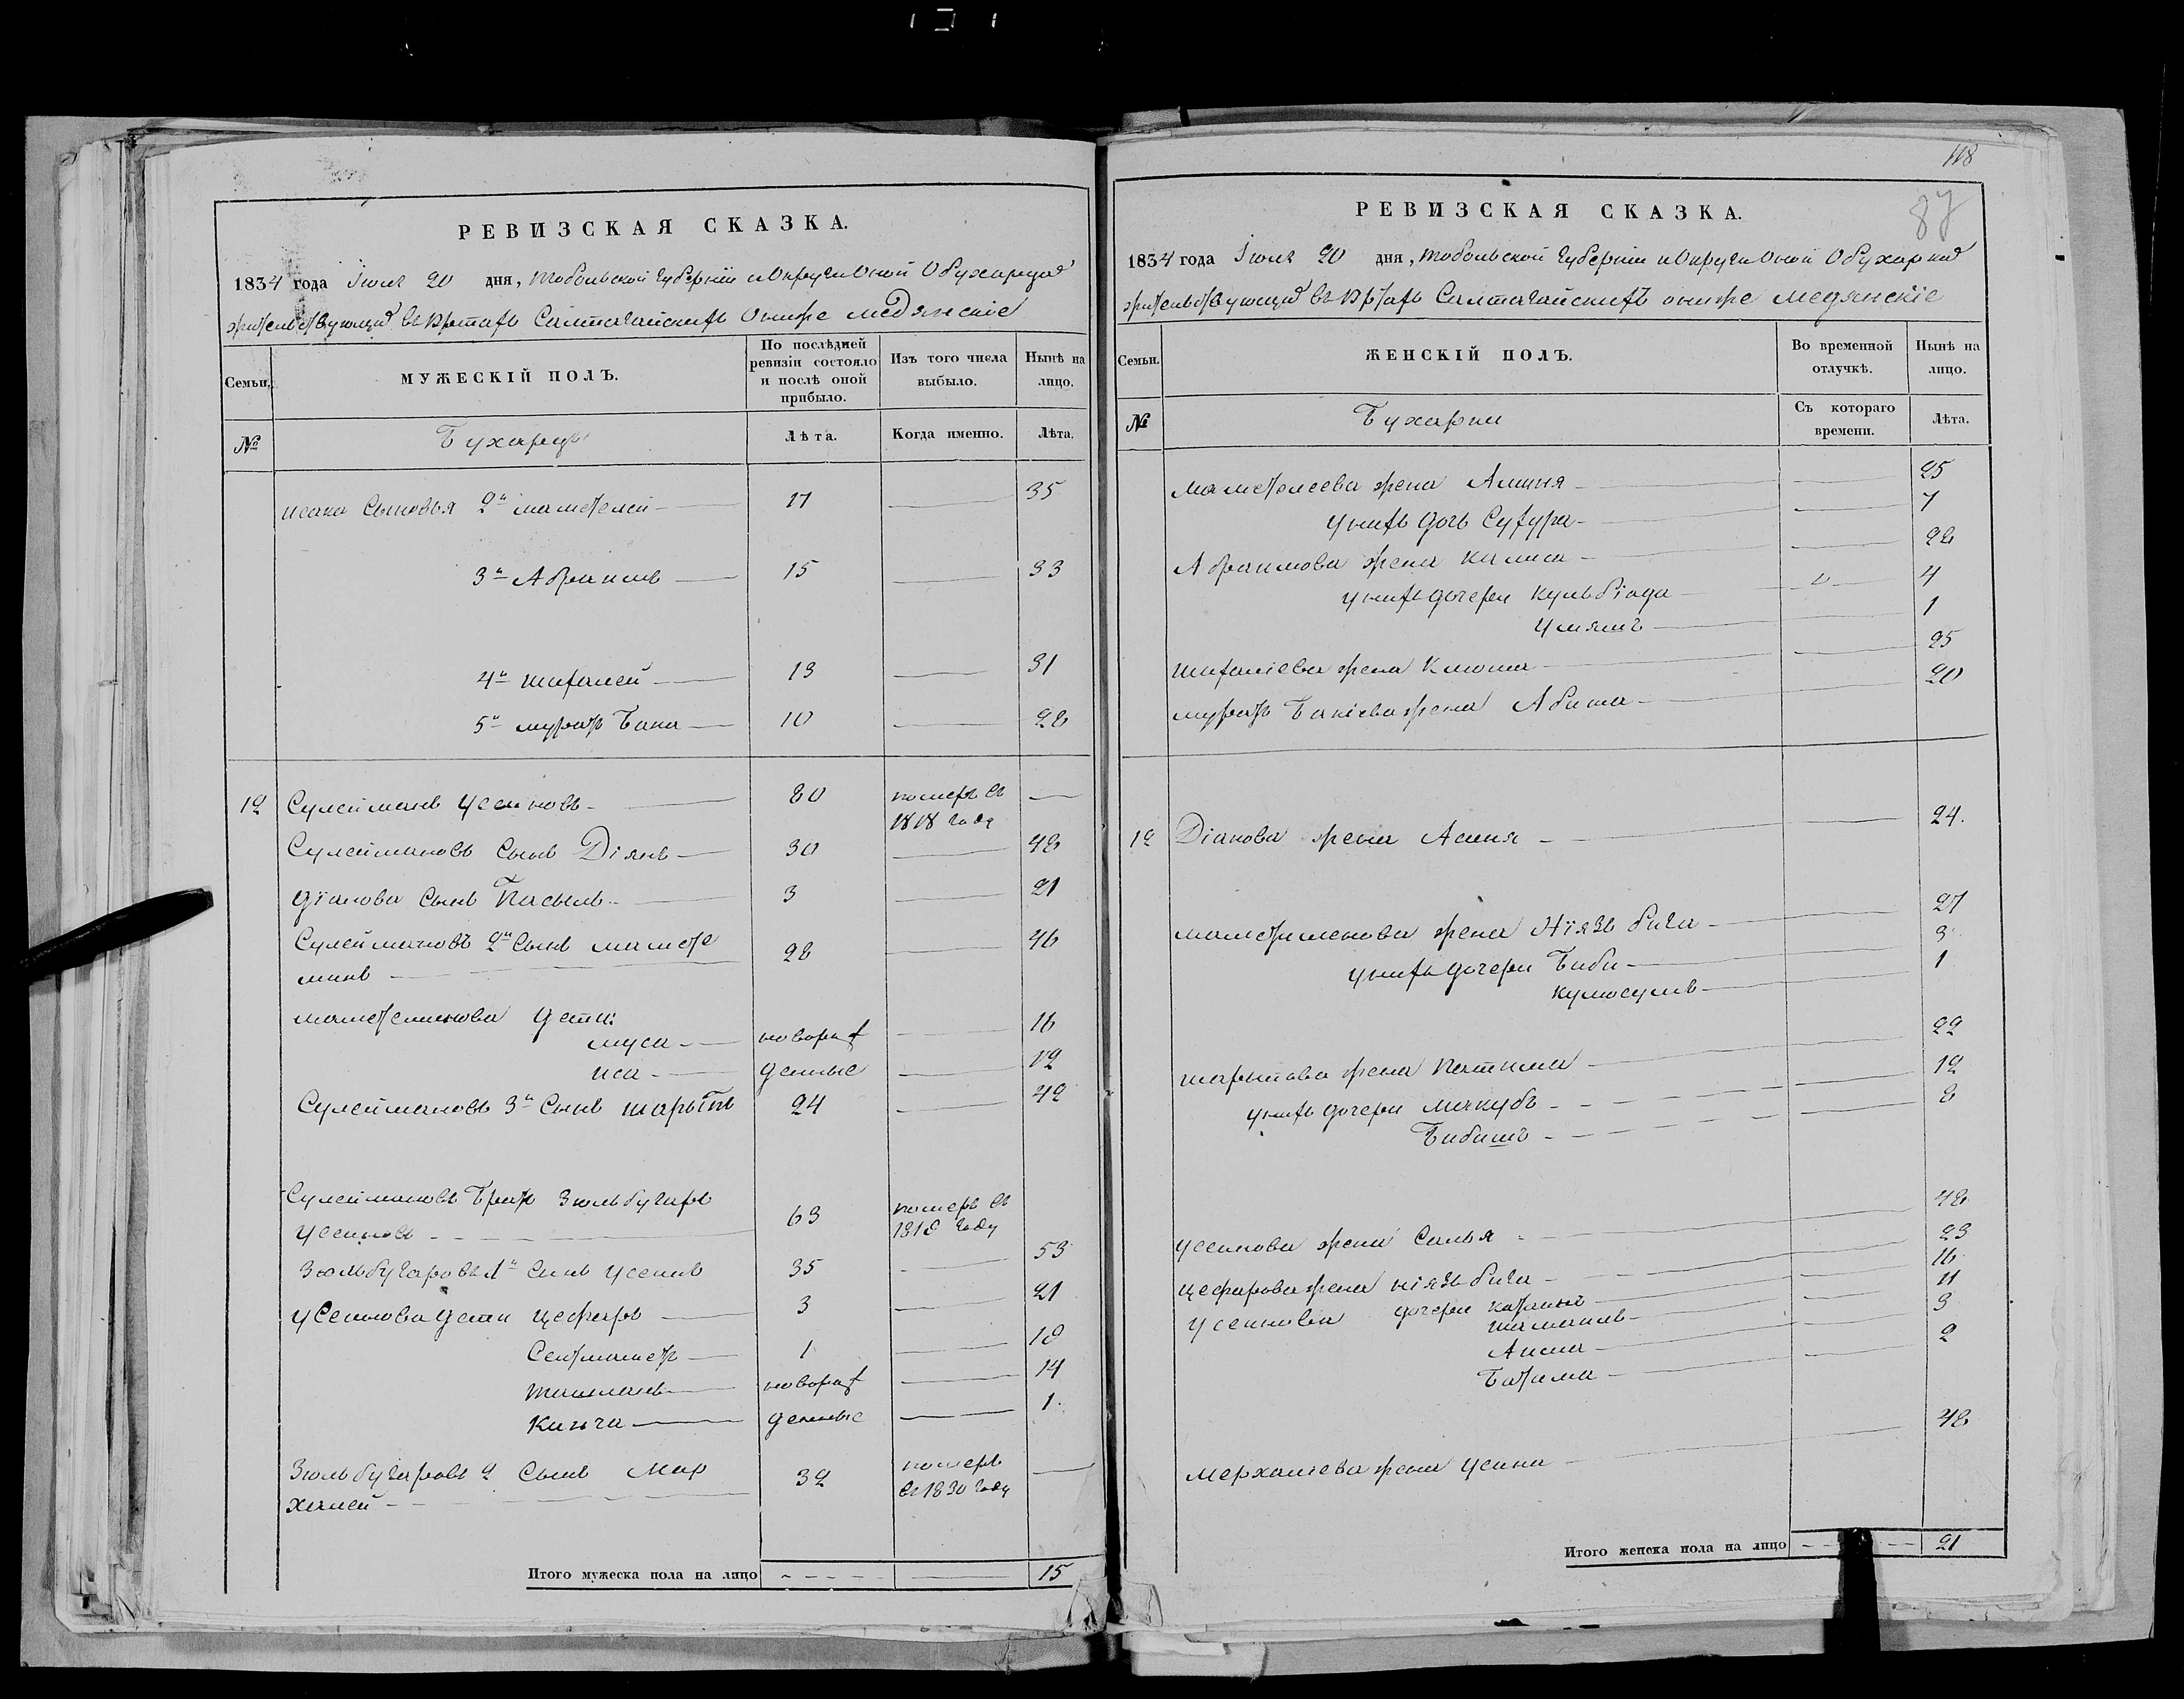 РЕВИЗСКАЯ СКАЗКА.
1834 года Июля 20 дня, Тобольской Губерніи и Округи Оной О бухарцах
жительствующих въ Юртахъ Салтагайскихъ ониже медянскіе
Семьи.
МУЖЕСКІЙ ПОЛЪ.
По послѣдней ревизіи состояло и послѣ оной прибыло.
Изъ того числа выбыло.
Нынѣ на лицо.
№
Бухарцы
Лѣта.
Когда именно.
Лѣта.
исака Сыновья 2й маметелей 17 35
3й Абраимъ 15 33
4й шиталей 13 31
5й муратъ Баки 10 28
12 Сулейманъ Усеиновъ 80 померъ въ
1818 году
Сулеймановъ Сынъ Діянъ 30 48
Діанова Сынъ Касымъ 3 21
Сулеймановъ 2й Сынъ мамете
минъ 28 46
маметеминова дети:
муса новорож 16
иса денные 12
Сулеймановъ 3й Сынъ шарыпъ 24 42
Сулеймановъ Братъ Зюльбугаръ
Усеиновъ 63 померъ въ
1818 году
Зюльбугаровъ 1й Сынъ Усеинъ 35 53
Усеинова дети цефаръ 3 21
Сеитмаметъ 1 18
ташманъ новорож 14
Кинча денные 1
Зюльбугаровъ 2 Сынъ Мер
халей 32 померъ
въ 1830 году
Итого мужеска пола на лицо 15
118
87
РЕВИЗСКАЯ СКАЗКА.
1834 года Июля 20 дня, Тобольской Губерніи и Округи Оной О бухарках
жительствующих въ Юртахъ Салтагайскихъ ониже медянскіе
Семьи.
ЖЕНСКІЙ ПОЛЪ.
Во временной отлучкѣ.
Нынѣ на лицо.
№
Бухарки
Съ котораго времени.
Лѣта.
маметелеева жена Аминя 25
у нихъ дочь Сутура 7
Абраимова жена калиса 28
у нихъ дочери Кульбіада 4
Умяшъ 1
шиталіева жена Клюша 25
муратъ Бакіева жена Абиша 20
12 Діанова жена Асиня 24.
маметеменова жена Ніязь бига 27
у нихъ дочери Биби 3
кумосумъ 1
шарыпова жена Катима 22
у нихъ дочери макубъ 12
Бибишъ 8
Усеинова жена Салья 48
цефарова жена ніязь бига 23
Усеинова дочери 16
шаманъ 11
Аиша 3
Батима 2
мерхаліева жена Усина 48
Итого женска пола на лицо 21